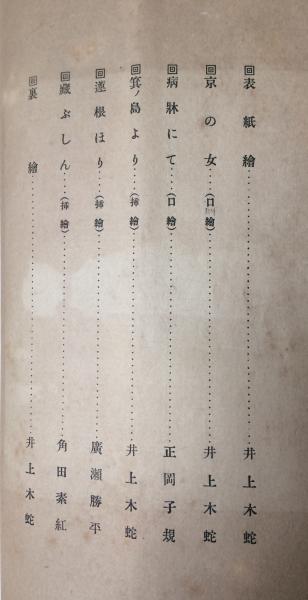 回表紙繪……井上木蛇
回京の女……(口繪)……井上木蛇
回病牀にて……(口繪)……正岡子規
回箕ノ島より……(挿繪)……井上木蛇
回蓮根ほり……(挿繪)……廣瀨勝平
回藏ぶしん……(挿繪)……角田素紅
回裏繪……井上木蛇